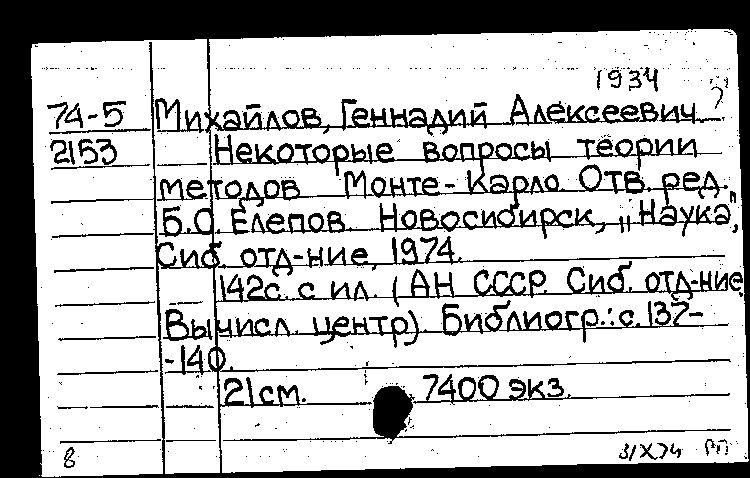 1934
74-5 Михайлов, Геннадий Алексеевич
2153 Некоторые вопросы теории
методов Монте-Карло. Отв. ред.
Б.С. Елепов. Новосибирск, „Наука",
Сиб. отд-ние, 1974.
142с. с ил. (АН СССР. Сиб. отд-ние.
Вычисл. центр). Библиогр.: с. 137-
-140.
21см. 7400 экз.
8 31/X74 РП